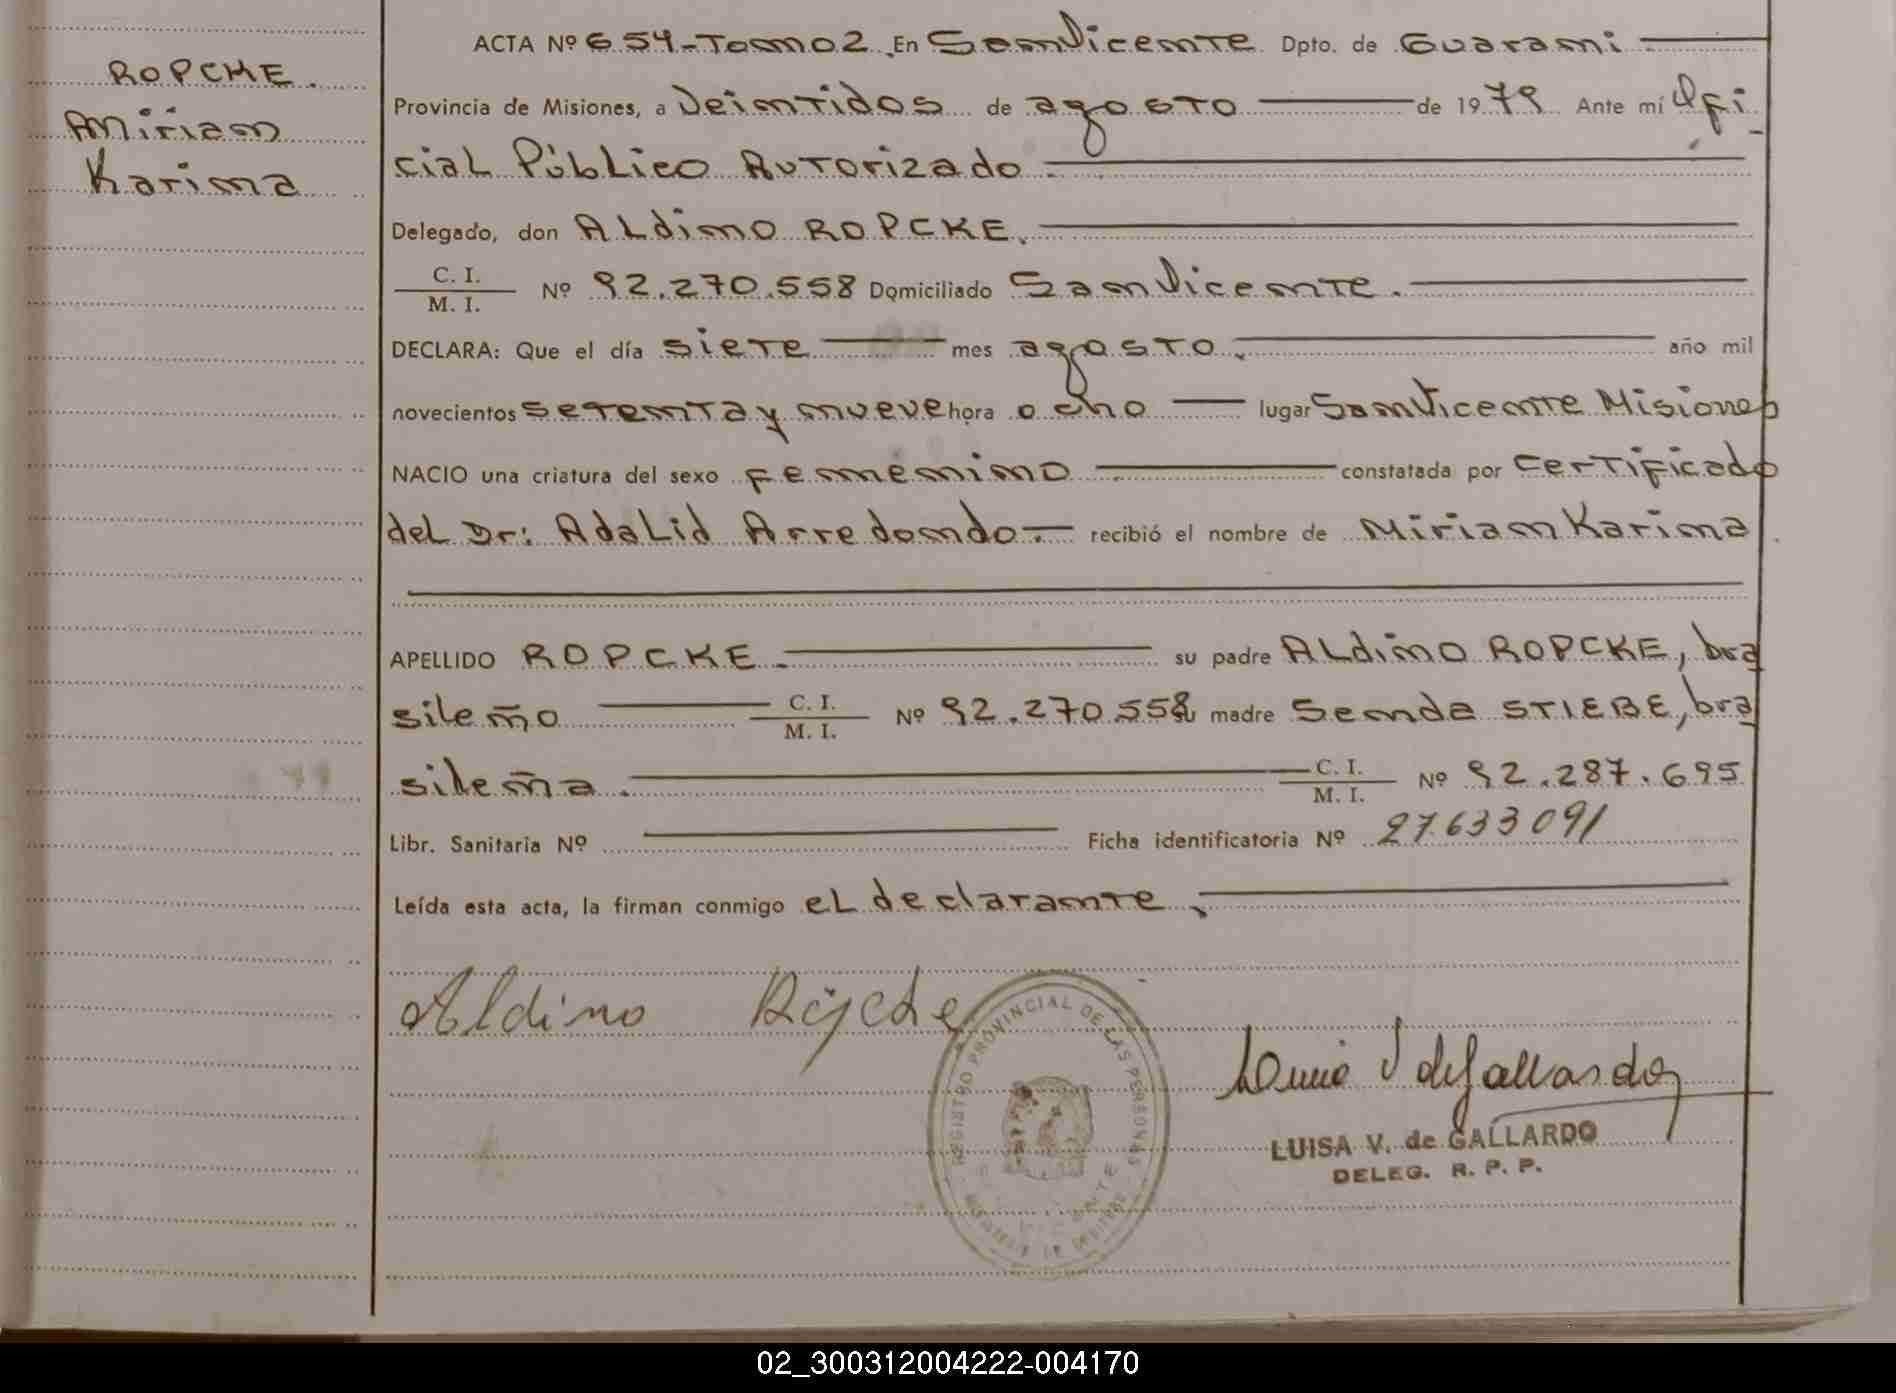 ROPCKE.
Miriam
Karina
ACTA Nº 654-Tomo 2. En San Vicente Dpto. de Guarani
Provincia de Misiones, a Veintidos de agosto de 1979 Ante mí Ofi
cial Público Autorizado
Delegado, don Aldino ROPCKE.
C. I.
M. I. Nº 92.270.558 Domiciliado San Vicente.
DECLARA: Que el día siete mes agosto. año mil
novecientos setenta y nueve hora ocho lugar San Vicente Misiones
NACIO una criatura del sexo femenino constatada por certificado
del Dr: Adalid Arredondo recibió el nombre de Miriam Karina
APELLIDO ROPCKE. su padre Aldino ROPCKE, bra
sileño C. I.
M. I. Nº 92.270.558 su madre Senda STIEBE, bra
sileña. C. I.
M. I. Nº 92.287.695
Libr. Sanitaria Nº Ficha identificatoria Nº 27.633091
Leída esta acta, la firman conmigo el declarante.
Aldino
REGISTRO PROVINCIAL DE LAS PERSONAS
LUISA V. de GALLARDO
DELEG. R. P. P.
02_300312004222-004170